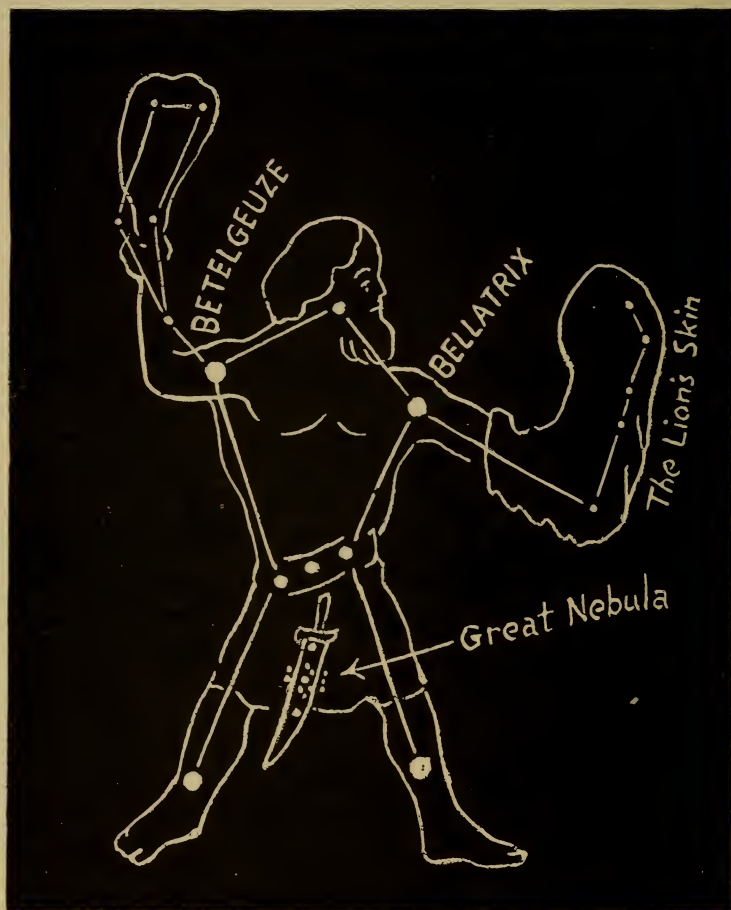 BETELGEUZE
BELLATRIX
The Lion's Skin
Great Nebula